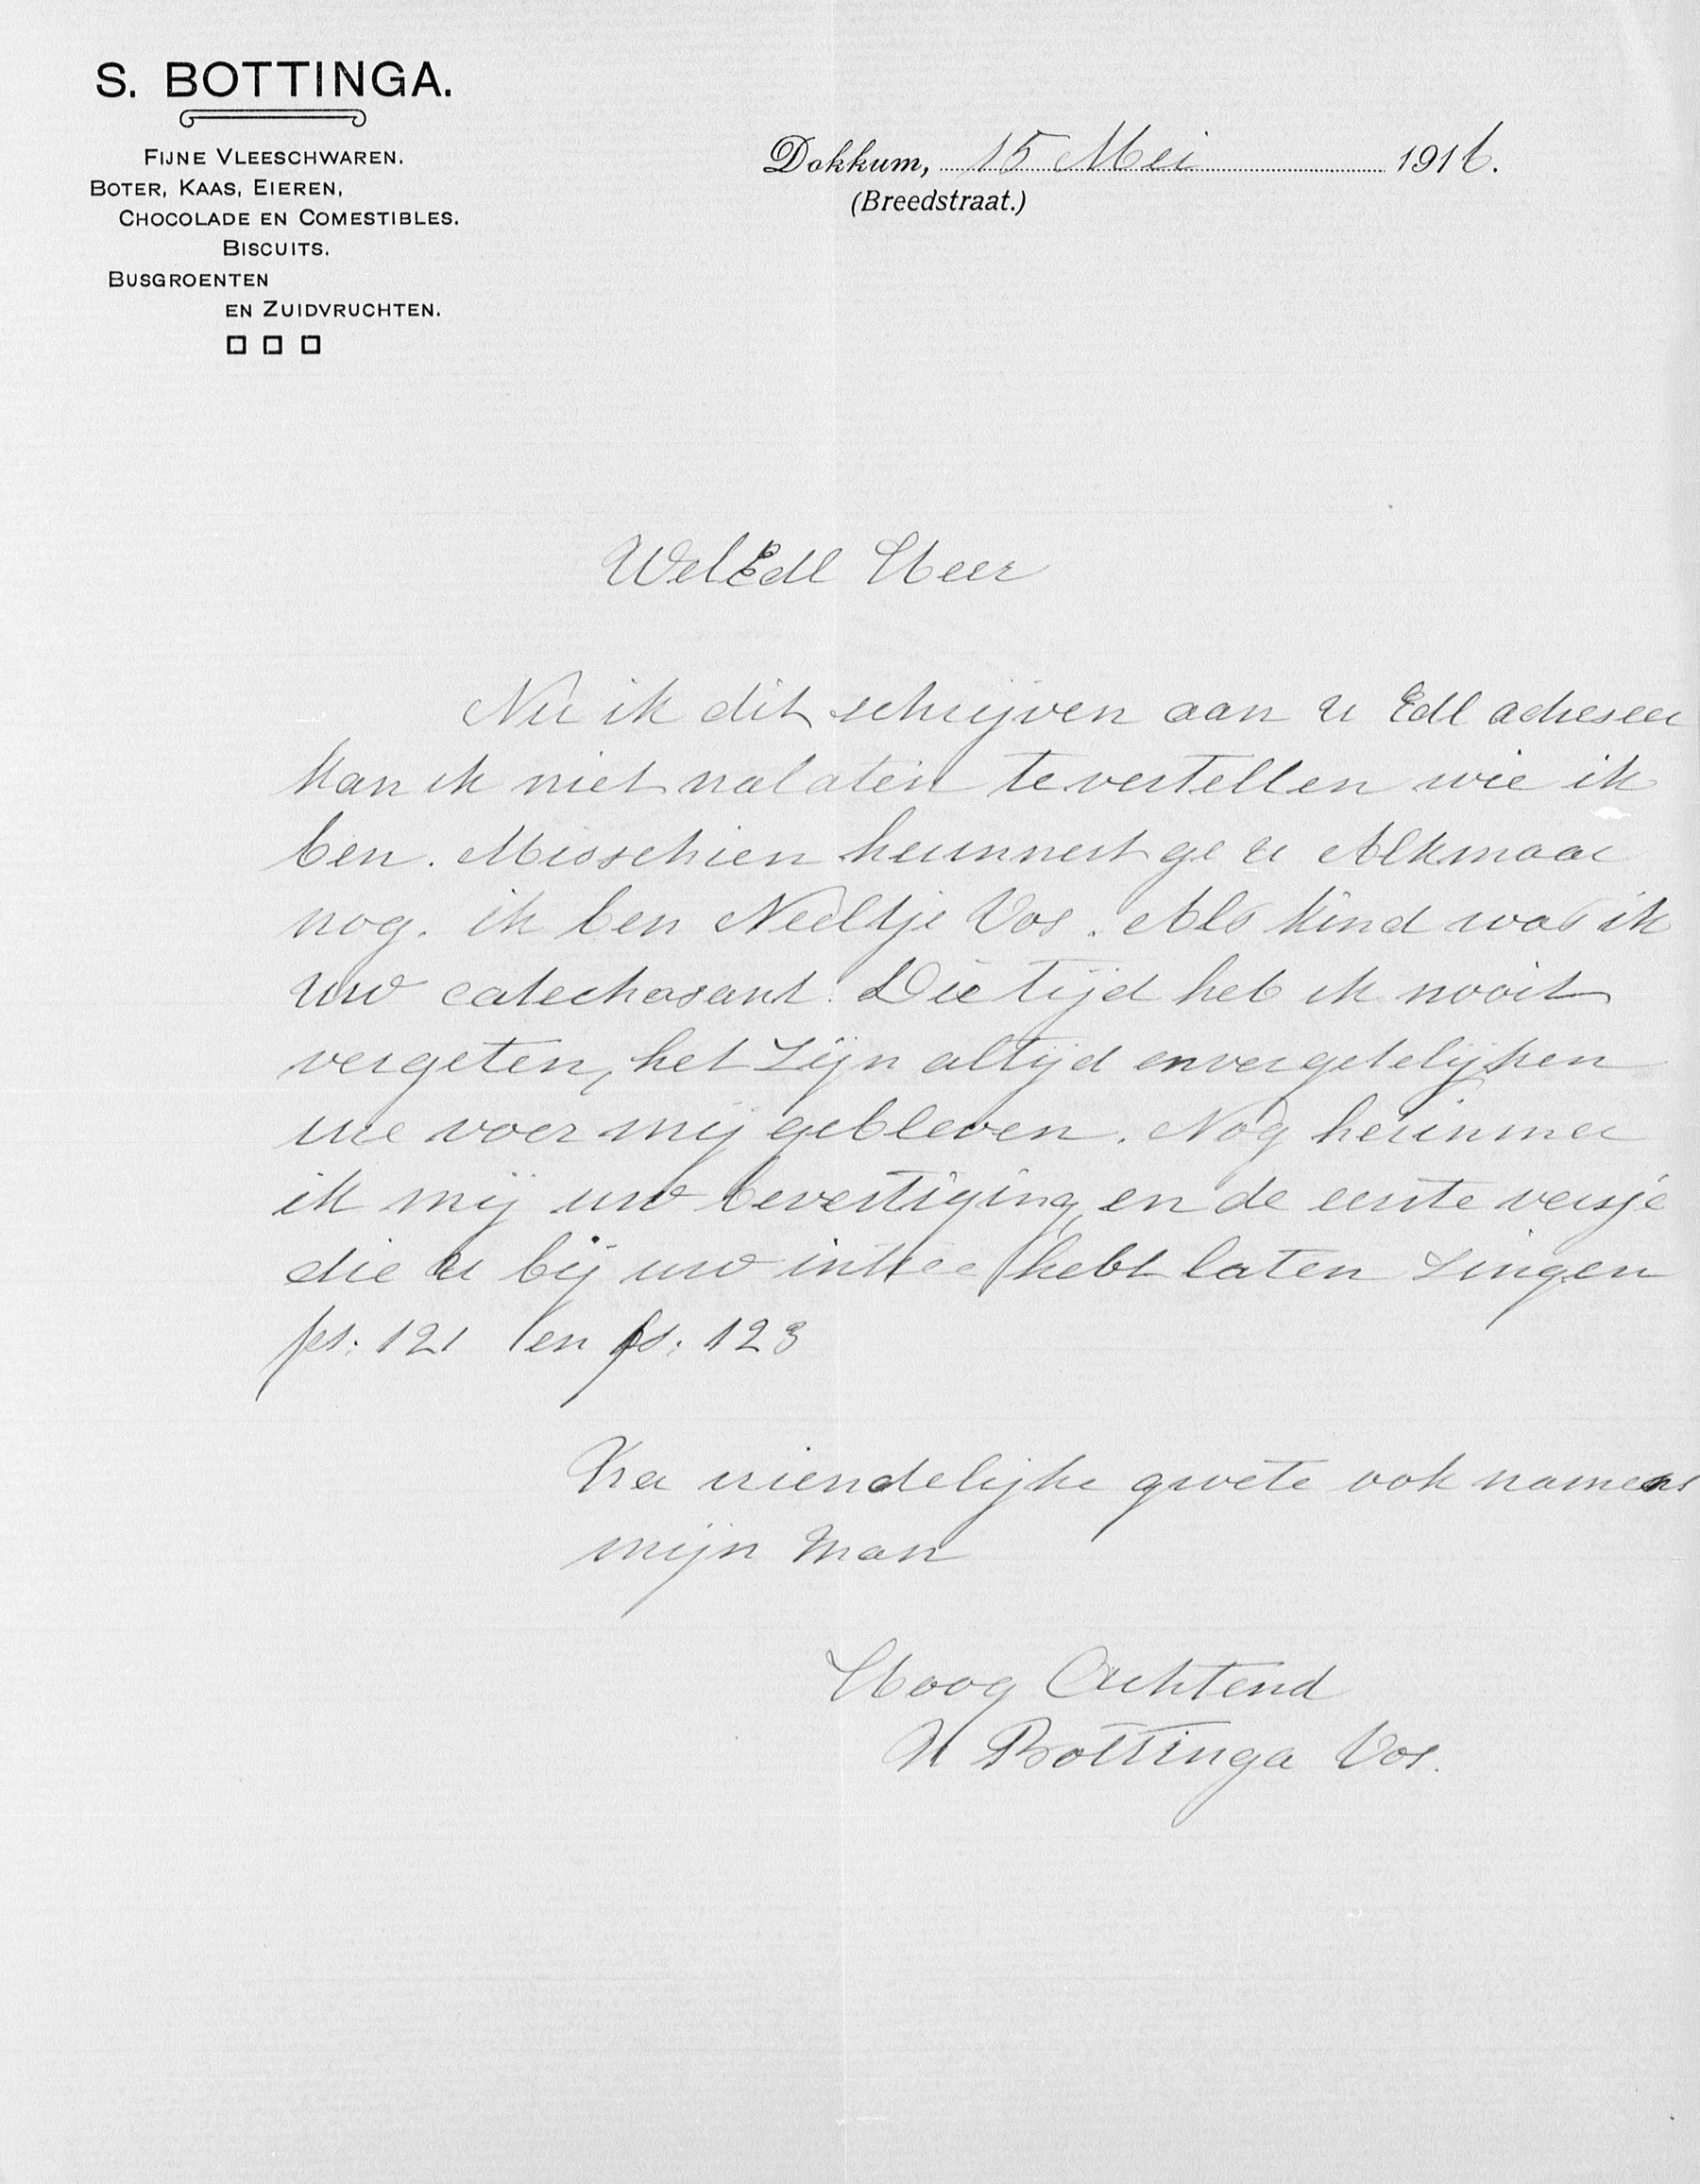 S. BOTTINGA.
FIJNE VLEESCHWAREN.
BOTER, KAAS, EIEREN,
CHOCOLADE EN COMESTIBLES.
BISCUITS.
BUSGROENTEN
EN ZUIDVRUCHTEN.
Dokkum, 15 Mei 1916.
(Breedstraat.)
WelEdl Heer
Nu ik dit schrijven aan u Edl adreseer
kan ik niet nalaten te vertellen wie ik
ben. Misschien herinnert ge u Alkmaar
nog. ik ben Neeltje Vos. Als kind was ik
uw catechasant. Die tijd heb ik nooit
vergeten, het zijn altijd onvergetelijken
ure voor mij gebleven. Nog herinner
ik mij uw bevestiging en de eerste versje
die u bij uw intree hebt laten zingen
ps: 121 en ps: 123
Na vriendelijke groete ook namens
mijn Man
Hoog Achtend
N Bottinga Vos.